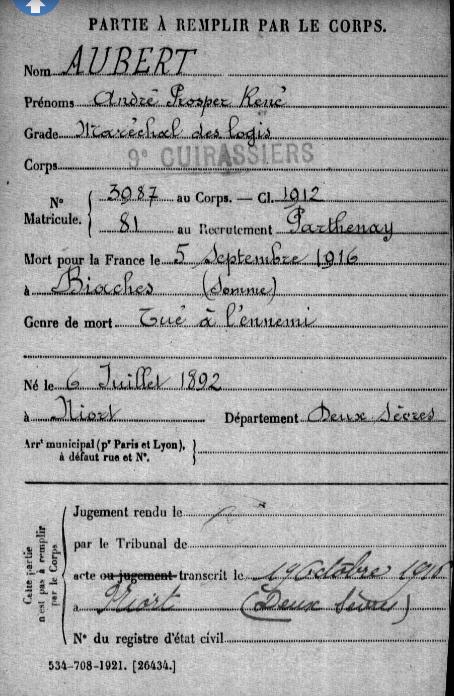 PARTIE À REMPLIR PAR LE CORPS.
Nom AUBERT
Prénoms André Prosper René
Grade Maréchal des logis
Corps 9e CUIRASSIERS
N° Matricule. { 3987 au Corps. — Cl. 1912
81 au Recrutement Parthenay
Mort pour la France le 5 Septembre 1916
à Biaches (Somme)
Genre de mort Tué à l'ennemi
Né le 6 Juillet 1892
à Niort Département Deux Sèvres
Arrt municipal (pr Paris et Lyon), à défaut rue et N°. }
Cette partie n'est pas à remplir par le Corps
Jugement rendu le
par le Tribunal de
acte ou jugement transcrit le 19 Octobre 1916
à Niort (Deux Sèvres)
N° du registre d'état civil
534-708-1921. [26434.]